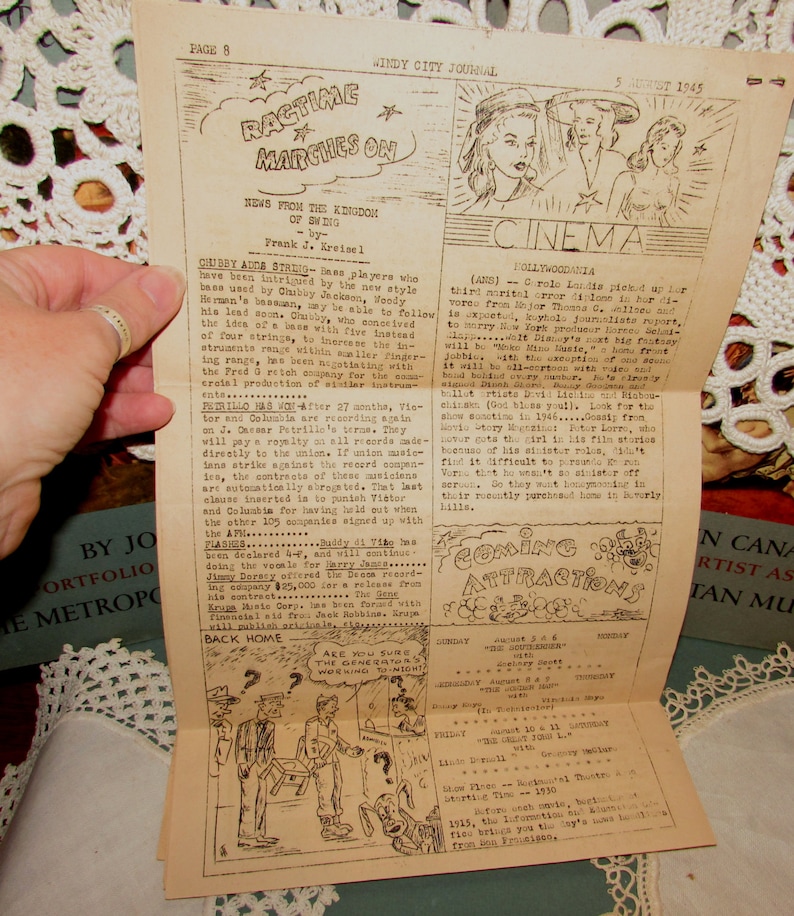 PAGE 8
WINDY CITY JOURNAL
5 AUGUST 1945
RAGTIME
MARCHES ON
NEWS FROM THE KINGDOM
OF SWING
- by-
Frank J. Kreisel
CHUBBY ADDS STRING- Bass players who
have been intrigued by the new style
bass used by Chubby Jackson, Woody
Herman's bassman, may be able to follow
his lead soon. Chubby, who conceived
the idea of a bass with five instead
of four strings, to increase the in-
struments range within smaller finger-
ing range, has been negotiating with
the Fred G retch company for the comm-
ercial production of similar instrum-
ents..............
PETRILLO HAS WON-After 27 months, Vic-
tor and Columbia are recording again
on J. Caesar Petrillo's terms. They
will pay a royalty on all records made-
directly to the union. If union music-
ians strike against the record compan-
ies, the contracts of these musicians
are automatically abrogated. That last
clause inserted is to punish Victor
and Columbia for having held out when
the other 105 companies signed up with
the AFM...........
FLASHES.............Buddy di Vito has
been declared 4-F, and will continue
doing the vocals for Harry James.......
Jimmy Dorsey offered the Decca record-
ing company $25,000 for a release from
his contract............ The Gene
Krupa Music Corp. has been formed with
financial aid from Jack Robbins. Krupa
will publish originals, etc..........
BACK HOME
ARE YOU SURE
THE GENERATOR'S
WORKING TO-NIGHT?
? ? ?
?
?
CINEMA
HOLLYWOODANIA
(ANS) -- Carole Landis picked up her
third marital error diploma in her di-
vorce from Major Thomas C. Wallace and
is expected, keyhole journalists report,
to marry New York producer Horace Schmi-
dlapp.....Walt Disney's next big fantasy
will be "Make Mine Music," a home front
jobbie. With the exception of one scene
it will be all-cartoon with voice and
band behind every number. He's already
signed Dinah Shore, Benny Goodman and
ballet artists David Lichine and Riabou-
chinska (God bless you!). Look for the
show sometime in 1946....Gossip from
Movie Story Magazine: Peter Lorre, who
never gets the girl in his film stories
because of his sinister roles, didn't
find it difficult to persuade Karen
Verne that he wasn't so sinister off
screen. So they went honeymooning in
their recently purchased home in Beverly
Hills.
COMING
ATTRACTIONS
SUNDAY August 5 & 6 MONDAY
"THE SOUTHERNER"
with
Zachary Scott
WEDNESDAY August 8 & 9 THURSDAY
"THE WONDER MAN"
with
Danny Kaye Virginia Mayo
(In Technicolor)
FRIDAY August 10 & 11 SATURDAY
"THE GREAT JOHN L."
with
Linda Darnell Gregory McClure
Show Place -- Regimental Theatre
Starting Time -- 1930
Before each movie, beginning at
1915, the Information and Education Of-
fice brings you the day's news headlines
from San Francisco.
BY JO
ORTFOLIO
HE METROPO
N CANA
ARTIST AS
TAN MU